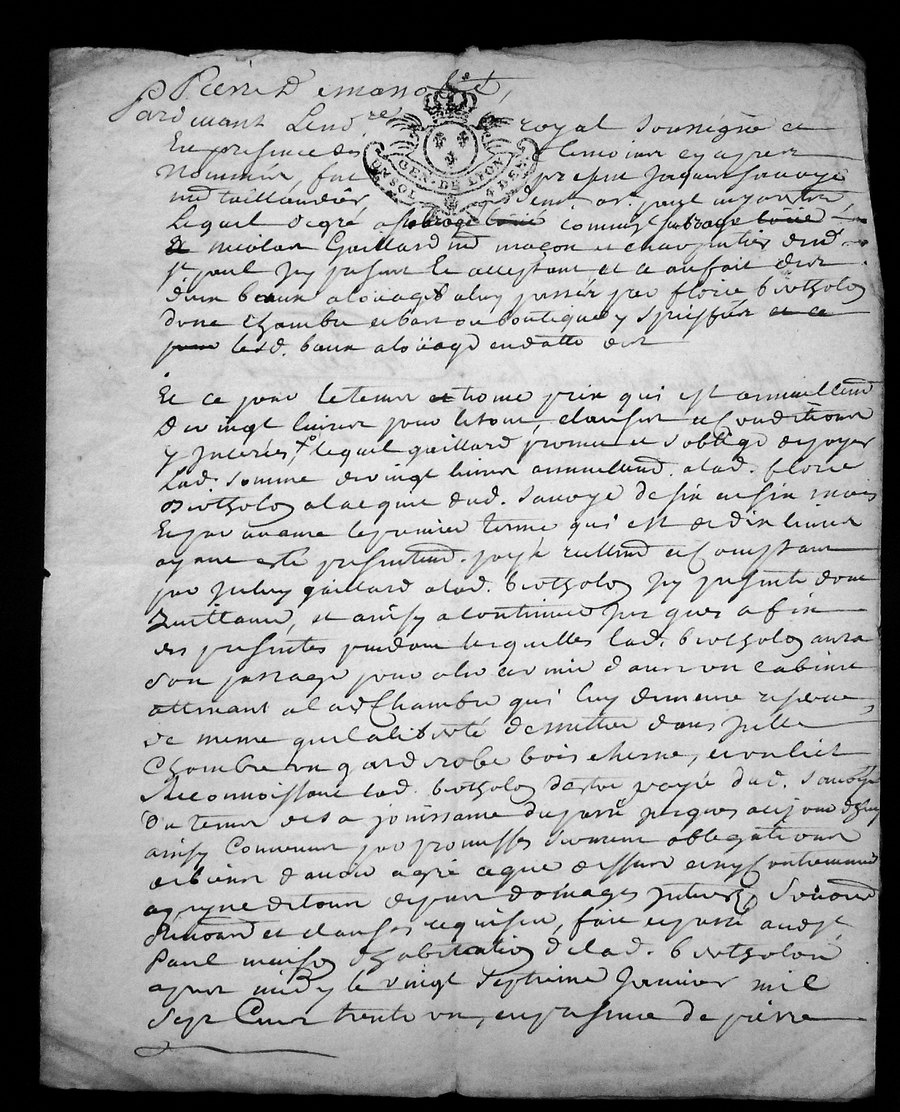 Pardevant Le no.re royal soussigné et
En presence des temoins cy apres
Nommes, fut present Jaques Sauvaye
GEN. DE LYON
UN SOL 4 DEN.
md taillandier
Lequel de gré a subrogé comme subroge
a nicolas Gaillard md maçon et charpentier dud.
st paul Icy present et acceptant et ce au fait de
deux beaux a loüages a luy passés par florie bertholon
dune chambre et bas ou boutique y speciffiés et ce
pour lesd. baux a loüage en datte des
Et ce pour le terme et prix qui est annuellement
De vingt livres pour le tout, clauses et Conditions
y Inserées, lequel gaillard promet et s'oblige de payer
Lad. somme de vingt livres annuellemt. a lad. florie
Bertholon a lacquit dud. Sauvaye de six en six mois
Et par avance le premier terme qui est de dix livres
ayant esté presentemt. payé reellemt. et Comptant
par Iceluy gaillard a lad. bertholon Icy presente dont
Quittance, et ainsy a continuer jusques a fin
des presentes pendant lesquelles lad. bertholon aura
son passage pour aller et venir dans un cabinet
attenant a lad. Chambre qui luy demeure reservé
de meme que la liberté de mettre dans Icelle
Chambre un garderobe bois chesne, et un lict
Reconnoissant lad. bertholon destre payée dud. Sauvaye
Du terme de sa joüissance du passé jusques a ce jourdhuy
ainsy Convenu par promesses serment obligations
de biens davoir a gré ce que dessus et ny Contrevenir
a peyne de tous depens domages Interests, Soumo.
Renonca. et clauses requises, fait et passé aud. st
Paul maison d'habitation de lad. bertholon
apres midy le vingt septieme Janvier mil
Sept Cent trente un, en presence de pierre